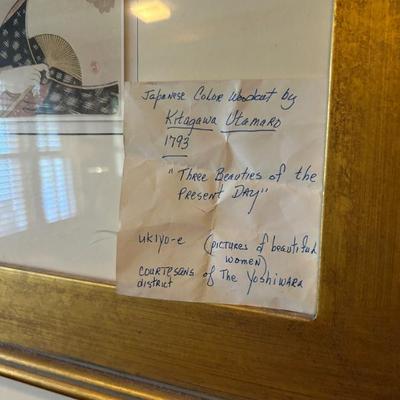 Japanese Color Woodcut by
Kitagawa Utamaro
1793
"Three Beauties of the
Present Day"
ukiyo-e (pictures of beautiful
women)
courtesans of The Yoshiwara
district